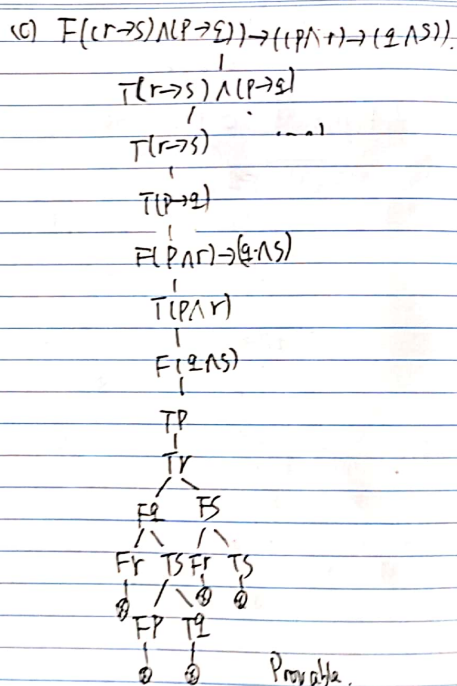 (c) F((r→s)∧(p→q))→((p∧r)→(q∧s)).
T(r→s)∧(p→q)
T(r→s)
T(p→q)
F(p∧r)→(q∧s)
T(p∧r)
F(q∧s)
Tp
Tr
Fq Fs
Fr Ts Fr Ts
⊗ ⊗ ⊗
Fp Tq
⊗ ⊗
Provable.